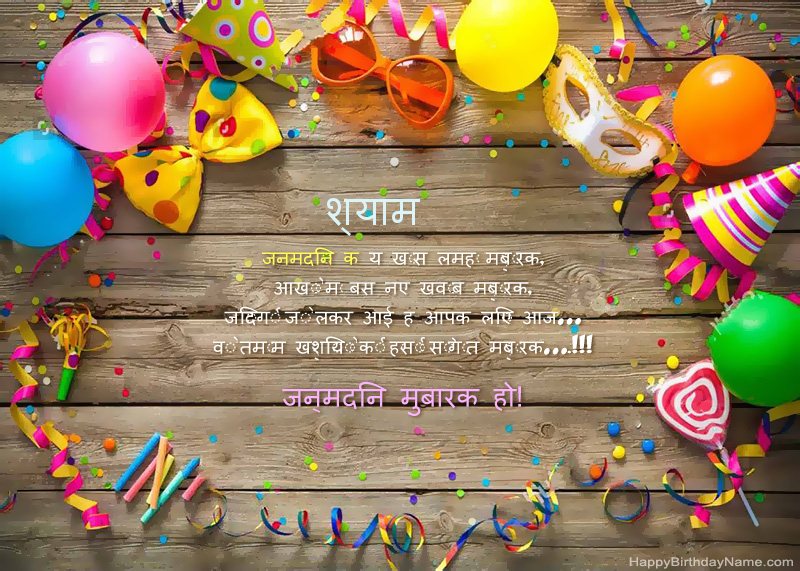 श्याम
जनमदनि क य खास लमह मबारक,
आखों म बस नए खवाब मबारक,
जदिगी जो लकर आई ह आपक लएि आज...
वो तमाम खुशयिों की हसी सौगात मबारक...!!!
जन्मदनि मुबारक हो!
HappyBirthdayName.com